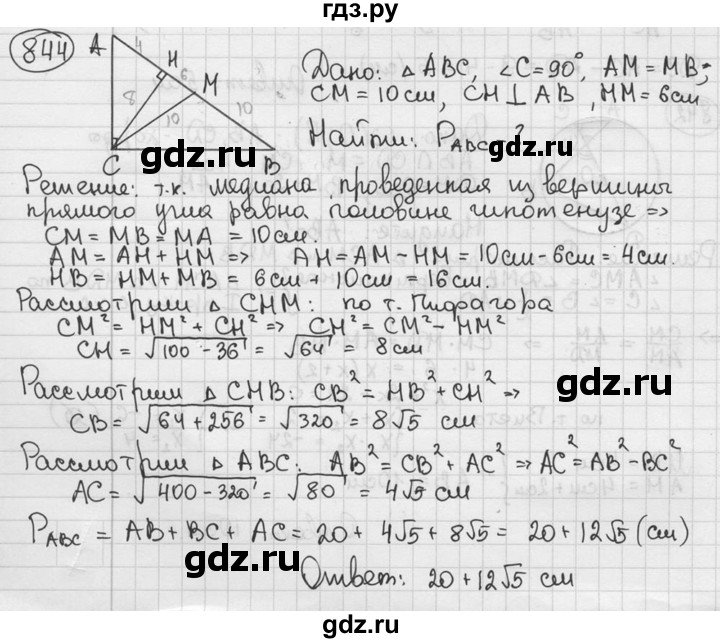 гдз.ру
844
A
4
H
6
M
8
10
10
C
B
Дано: △ ABC, ∠C=90°, AM=MB;
CM=10см, CH⊥AB, HM=6см
Найти: P_ABC - ?
Решение: т.к. медиана проведенная из вершины
прямого угла равна половине гипотенузе =>
CM = MB = MA = 10см.
AM = AH + HM => AH = AM - HM = 10см - 6см = 4см.
HB = HM + MB = 6см + 10см = 16см.
Рассмотрим △ CHM: по т. Пифагора
CM² = HM² + CH² => CH² = CM² - HM²
CH = √(100 - 36) = √64 = 8см
Рассмотрим △ CHB: CB² = HB² + CH² =>
CB = √(64 + 256) = √320 = 8√5 см
Рассмотрим △ ABC: AB² = CB² + AC² => AC² = AB² - BC²
AC = √(400 - 320) = √80 = 4√5 см
P_ABC = AB + BC + AC = 20 + 4√5 + 8√5 = 20 + 12√5 (см)
Ответ: 20 + 12√5 см
gdz.ru
gdz.ru
gdz.ru
gdz.ru
gdz.ru
gdz.ru
gdz.ru
gdz.ru